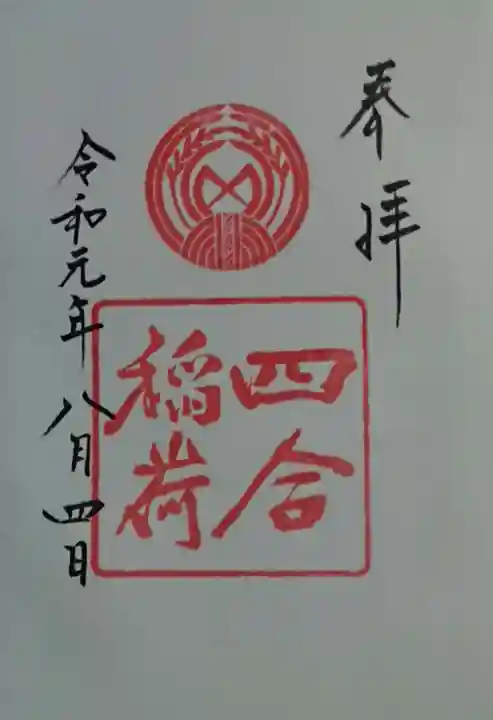 奉拝
四合
稲荷
令和元年 八月四日